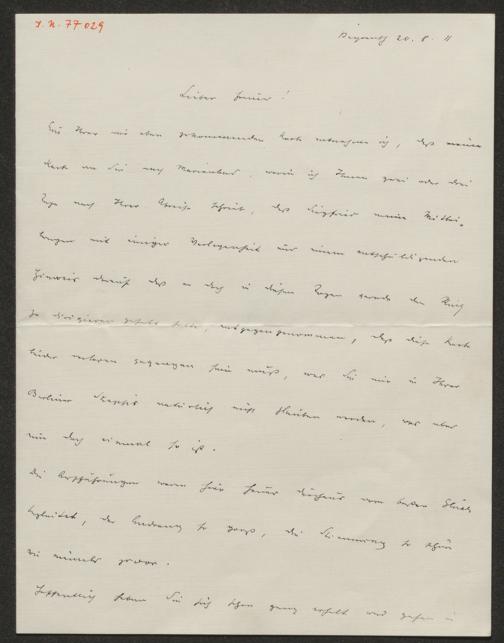 I.N. 77.029
Bayreuth 20. 8. 11
Lieber Freund!
Aus Ihrer mir eben gekommenen Karte entnehme ich, daß meine
Karte an Sie nach Marienbad, worin ich Ihnen zwei oder drei
Tage nach Ihrer Abreise schrieb, daß Siegfried meine Mittei-
lungen mit einiger Verlegenheit und einem entschuldigenden
Hinweis darauf daß er doch in diesen Tagen gerade den Ring
zu dirigieren gehabt hätte, entgegengenommen, daß diese Karte
leider verloren gegangen sein muß, was Sie mir in Ihrer
Berliner Skepsis natürlich nicht glauben werden, was aber
nun doch einmal so ist.
Die Aufführungen waren hier heuer durchaus vom besten Glück
begleitet, der Andrang so groß, die Stimmung so schön
wie niemals zuvor.
Hoffentlich haben Sie sich schon ganz erholt und gehen in